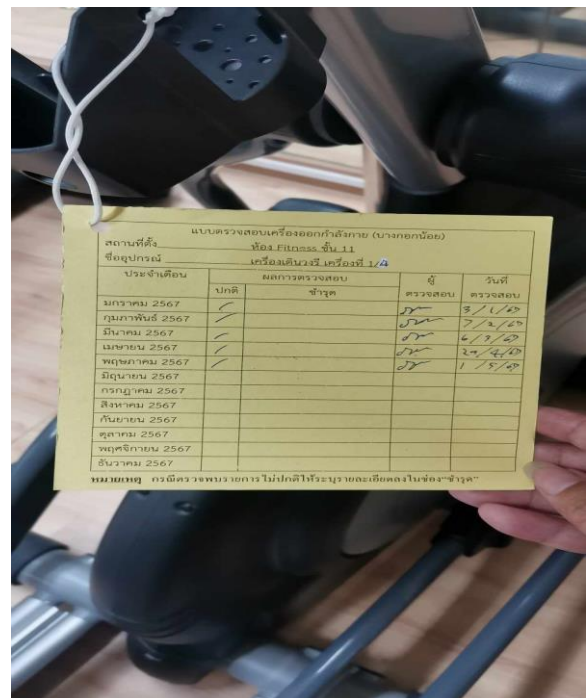 แบบตรวจสอบเครื่องออกกำลังกาย (บางกอกน้อย)
สถานที่ตั้ง ห้อง Fitness ชั้น 11
ชื่ออุปกรณ์ เครื่องเดินวงรี เครื่องที่ 1/4
ประจำเดือน ผลการตรวจสอบ ผู้ตรวจสอบ วันที่ตรวจสอบ
ปกติ ชำรุด
มกราคม 2567 / 3/1/67
กุมภาพันธ์ 2567 / 7/2/67
มีนาคม 2567 / 6/3/67
เมษายน 2567 / /4/67
พฤษภาคม 2567 / 1/5/67
มิถุนายน 2567
กรกฎาคม 2567
สิงหาคม 2567
กันยายน 2567
ตุลาคม 2567
พฤศจิกายน 2567
ธันวาคม 2567
หมายเหตุ กรณีตรวจพบรายการไม่ปกติให้ระบุรายละเอียดลงในช่อง"ชำรุด"